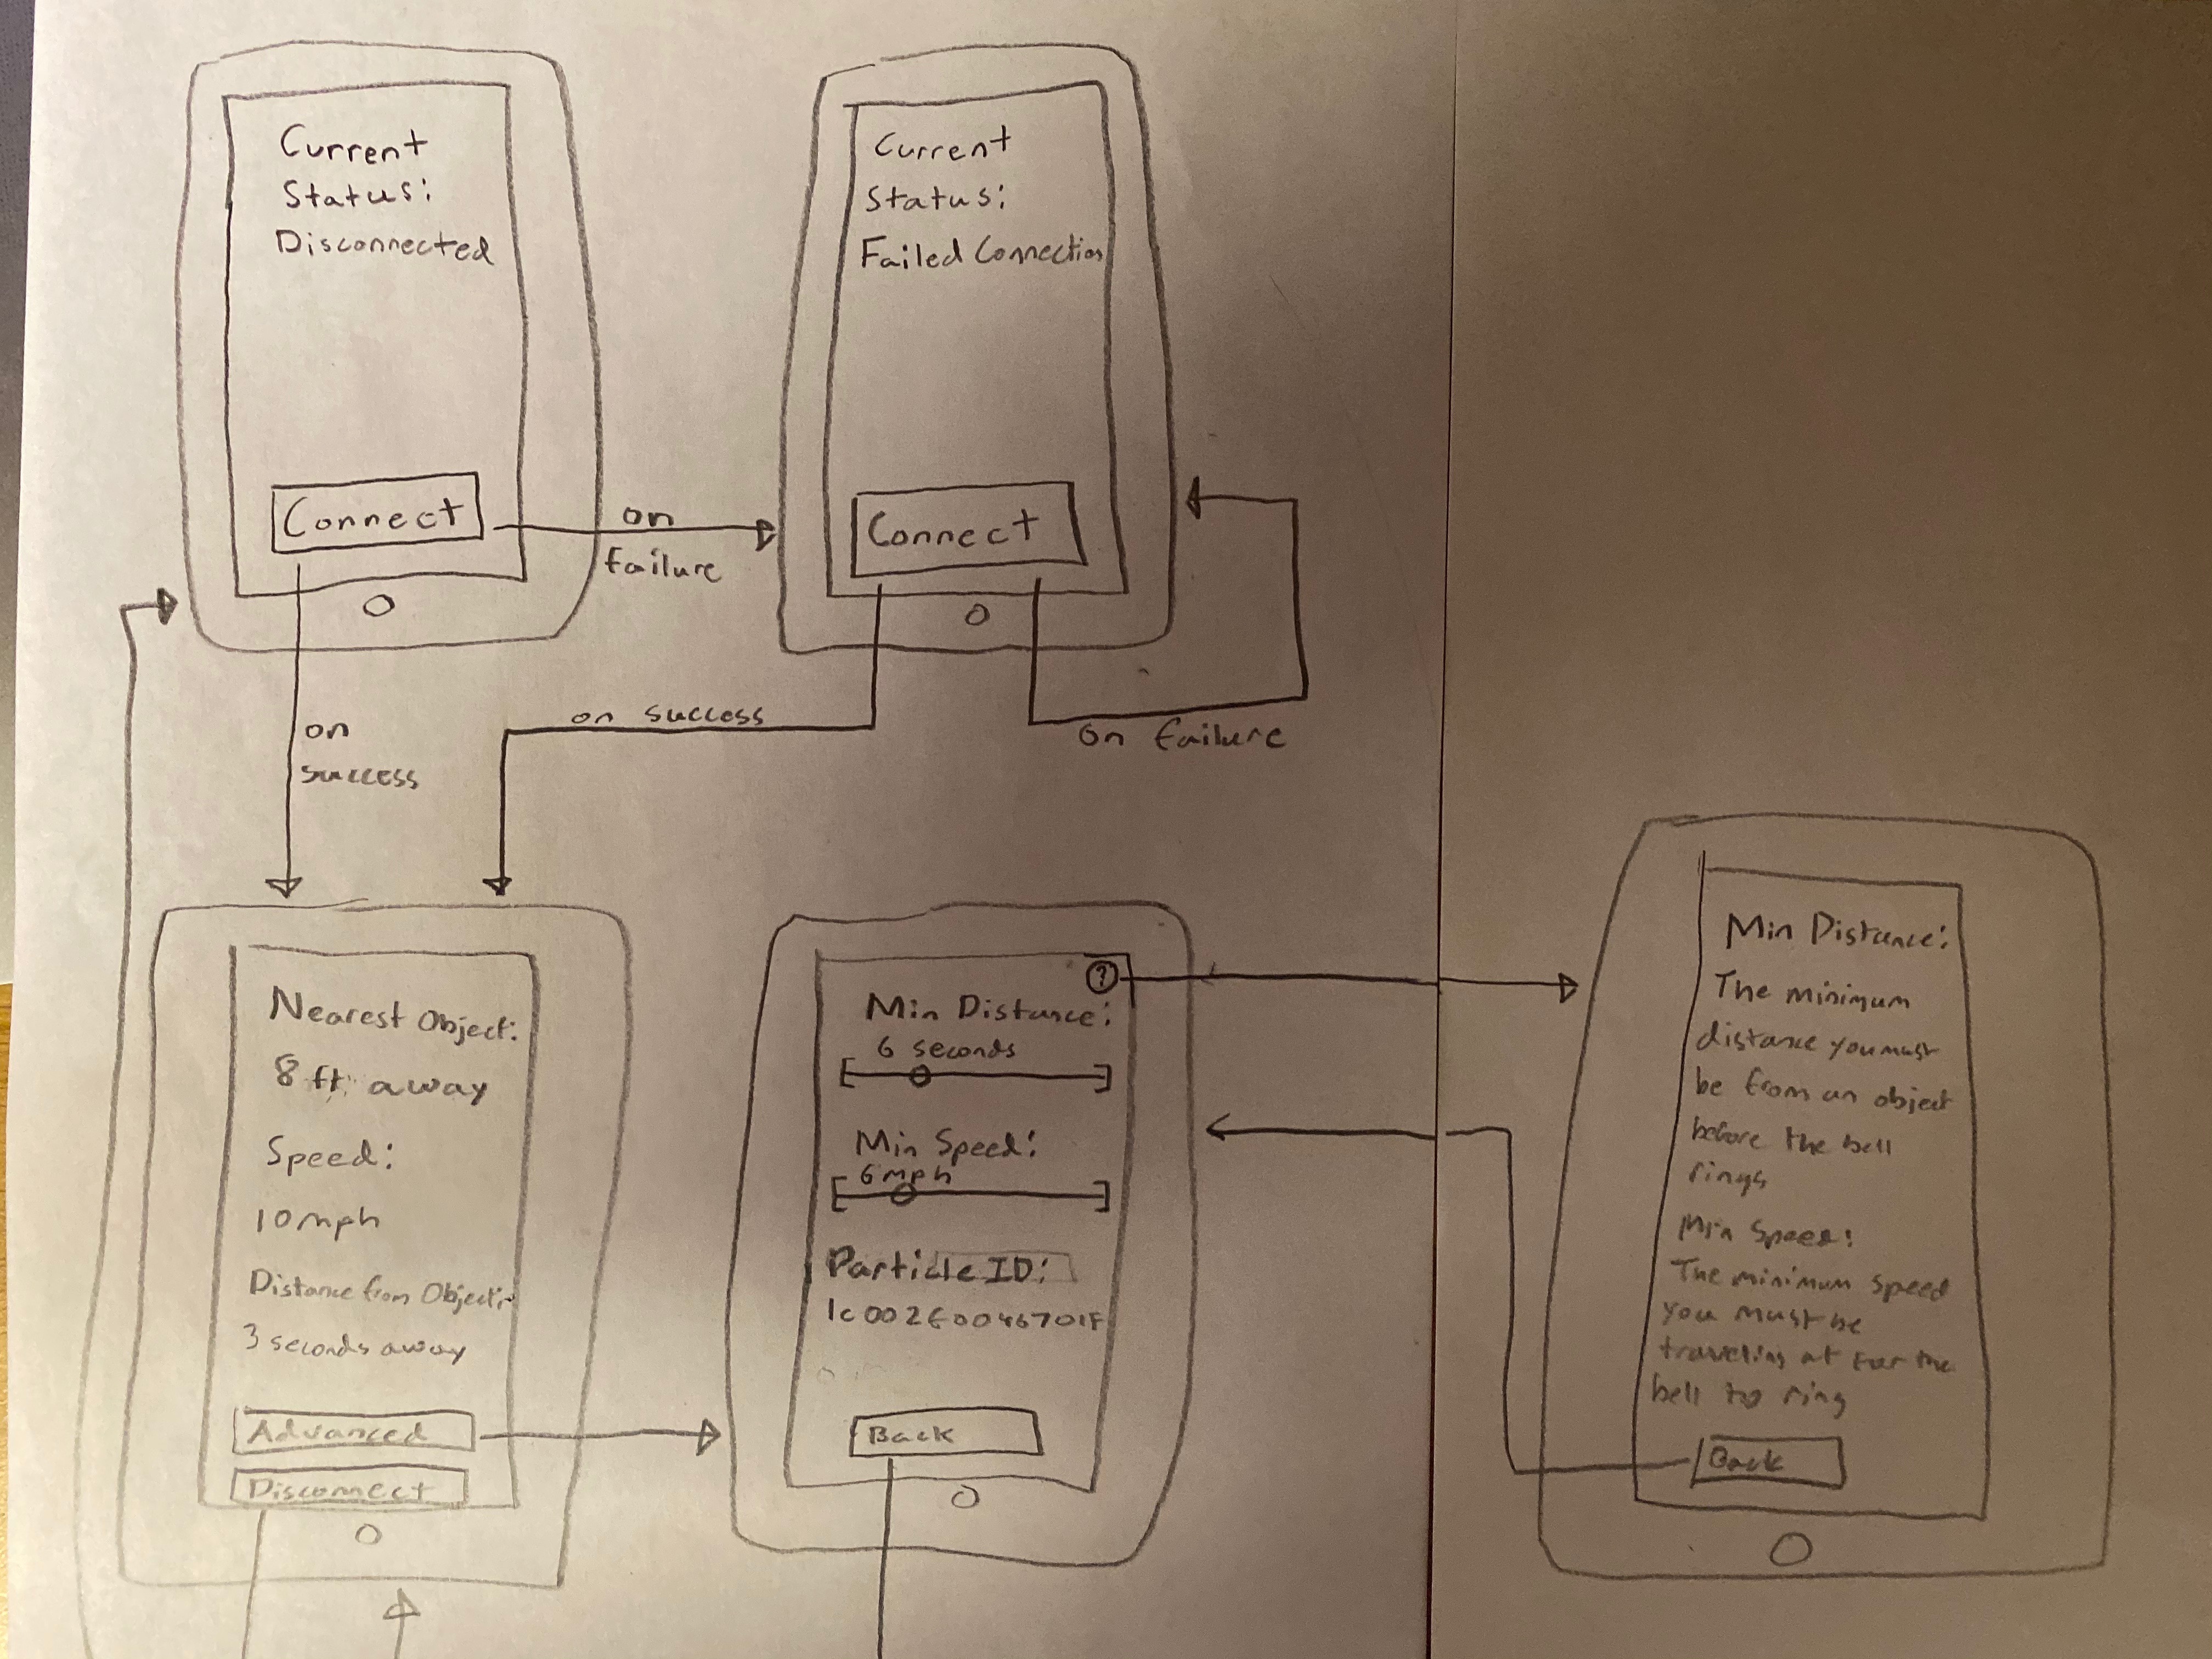 Current
Status:
Disconnected
Connect
on
failure
on
success
Current
Status:
Failed Connection
Connect
on success
on failure
Nearest Object:
8 ft away
Speed:
10 mph
Distance from Object:
3 seconds away
Advanced
Disconnect
?
Min Distance:
6 seconds
Min Speed:
6 mph
Particle ID:
Back
Min Distance:
The minimum
distance you must
be from an object
before the bell
rings
Min Speed:
The minimum speed
you must be
traveling at for the
bell to ring
Back